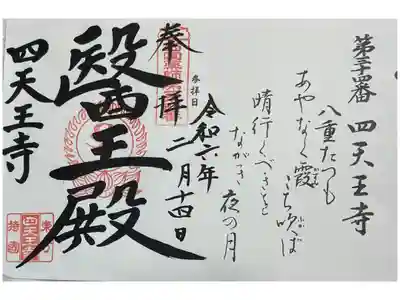 第三十四番 四天王寺
八重たつも
あやなく霞
こち吹ば
晴行くべきを
ながき夜の月
参拝日
令和六年
二月十四日
奉拝
醫王殿
四天王寺